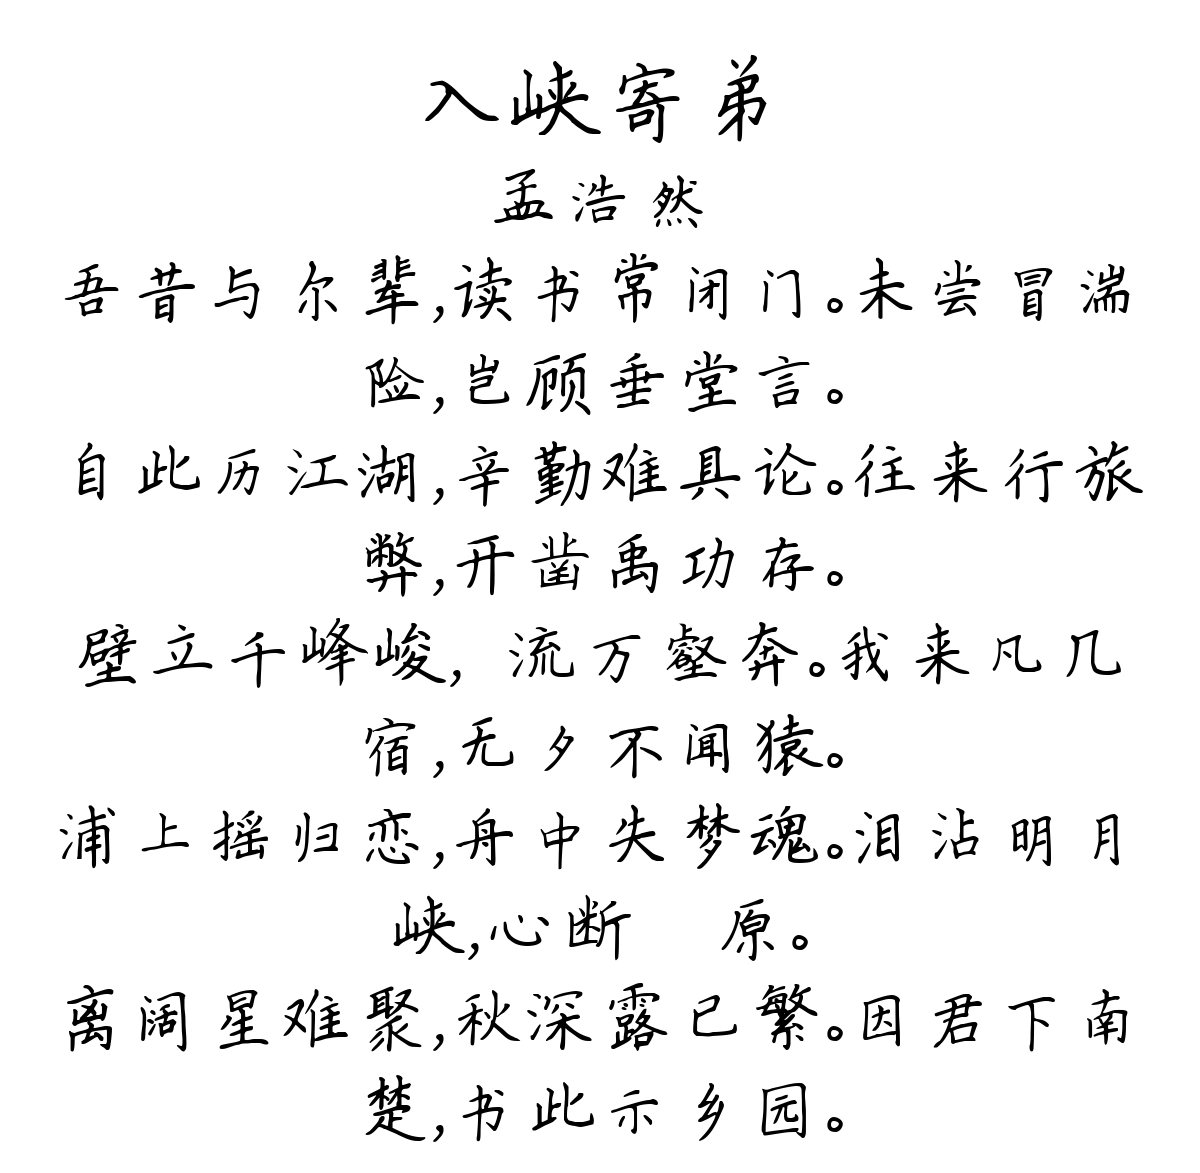 入峡寄弟
孟浩然
吾昔与尔辈,读书常闭门。未尝冒湍
险,岂顾垂堂言。
自此历江湖,辛勤难具论。往来行旅
弊,开凿禹功存。
壁立千峰峻, 流万壑奔。我来凡几
宿,无夕不闻猿。
浦上摇归恋,舟中失梦魂。泪沾明月
峡,心断 原。
离阔星难聚,秋深露已繁。因君下南
楚,书此示乡园。